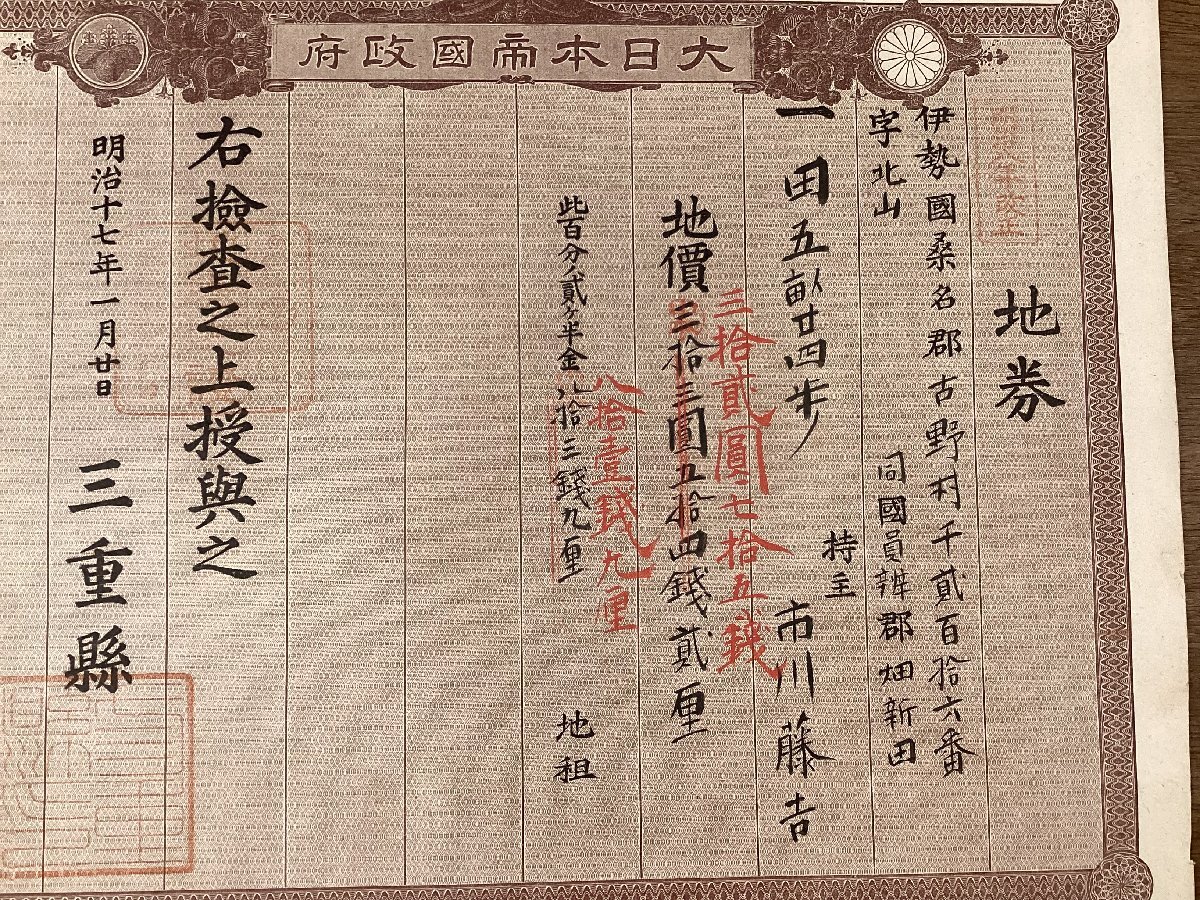 大日本帝國政府
地券
伊勢國桑名郡古野村千貳百拾六番
字北山
同國員辨郡畑新田
一田五畝廿四歩
持主 市川藤吉
地價三拾三圓五拾四錢貳厘
三拾貳圓七拾五錢
此百分ノ貳ヶ半金八拾三錢九厘 地租
八拾壹錢九厘
右撿査之上授與之
明治十七年一月廿日
三重縣